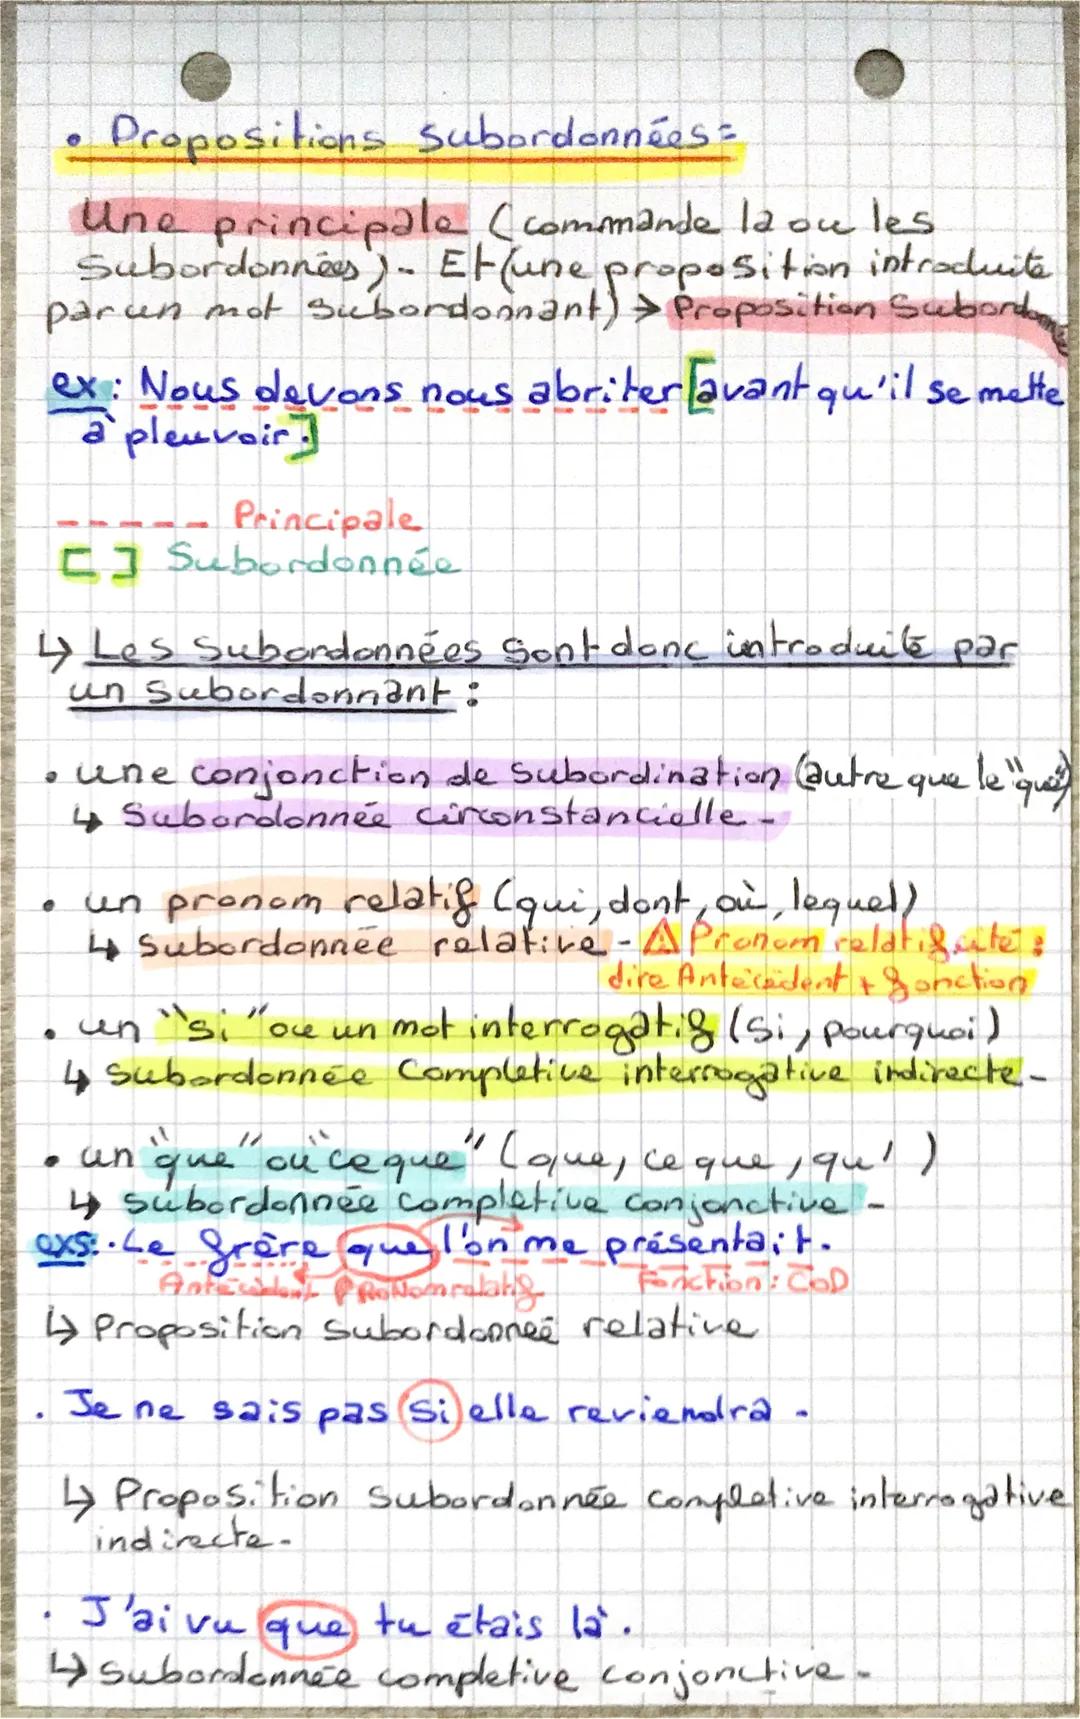 • Propositions subordonnées=
Une principale (commande la ou les
subordonnées). Et (une proposition introduite
par un mot subordonnant) → Proposition Subordonnée
ex: Nous devons nous abriter [avant qu'il se mette
à pleuvoir.]
----- Principale
[ ] Subordonnée
↳ Les Subordonnées sont donc introduite par
un subordonnant :
• une conjonction de subordination (autre que le "que")
↳ Subordonnée circonstancielle -
• un pronom relatif (qui, dont, où, lequel)
↳ subordonnée relative - ⚠ Pronom relatif cité :
dire Antécédent + fonction
• un "si" ou un mot interrogatif (si, pourquoi)
↳ subordonnée Complétive interrogative indirecte -
• un "que" ou "ce que" (que, ce que, qu')
↳ subordonnée complétive conjonctive -
exs: • Le frère que l'on me présentait.
Antécédent Pronom relatif Fonction : COD
↳ Proposition subordonneé relative
• Je ne sais pas si elle reviendra.
↳ Proposition subordonnée complétive interrogative
indirecte -
• J'ai vu que tu étais là.
↳ subordonnée complétive conjonctive -